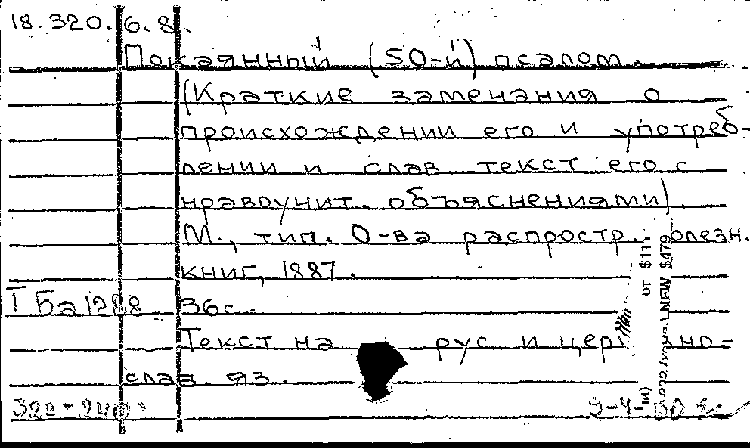 18.320.6.8.
Покаянный (50-й) псалом.
(Краткие замечания о
происхождении его и употреб-
лении и слав текст его с
нравоучит. объяснениями)
М., тип. О-ва распростр. полезн.
книг, 1887.
I Ба 1288 36с.
Текст на рус и церковно-
слав. яз.